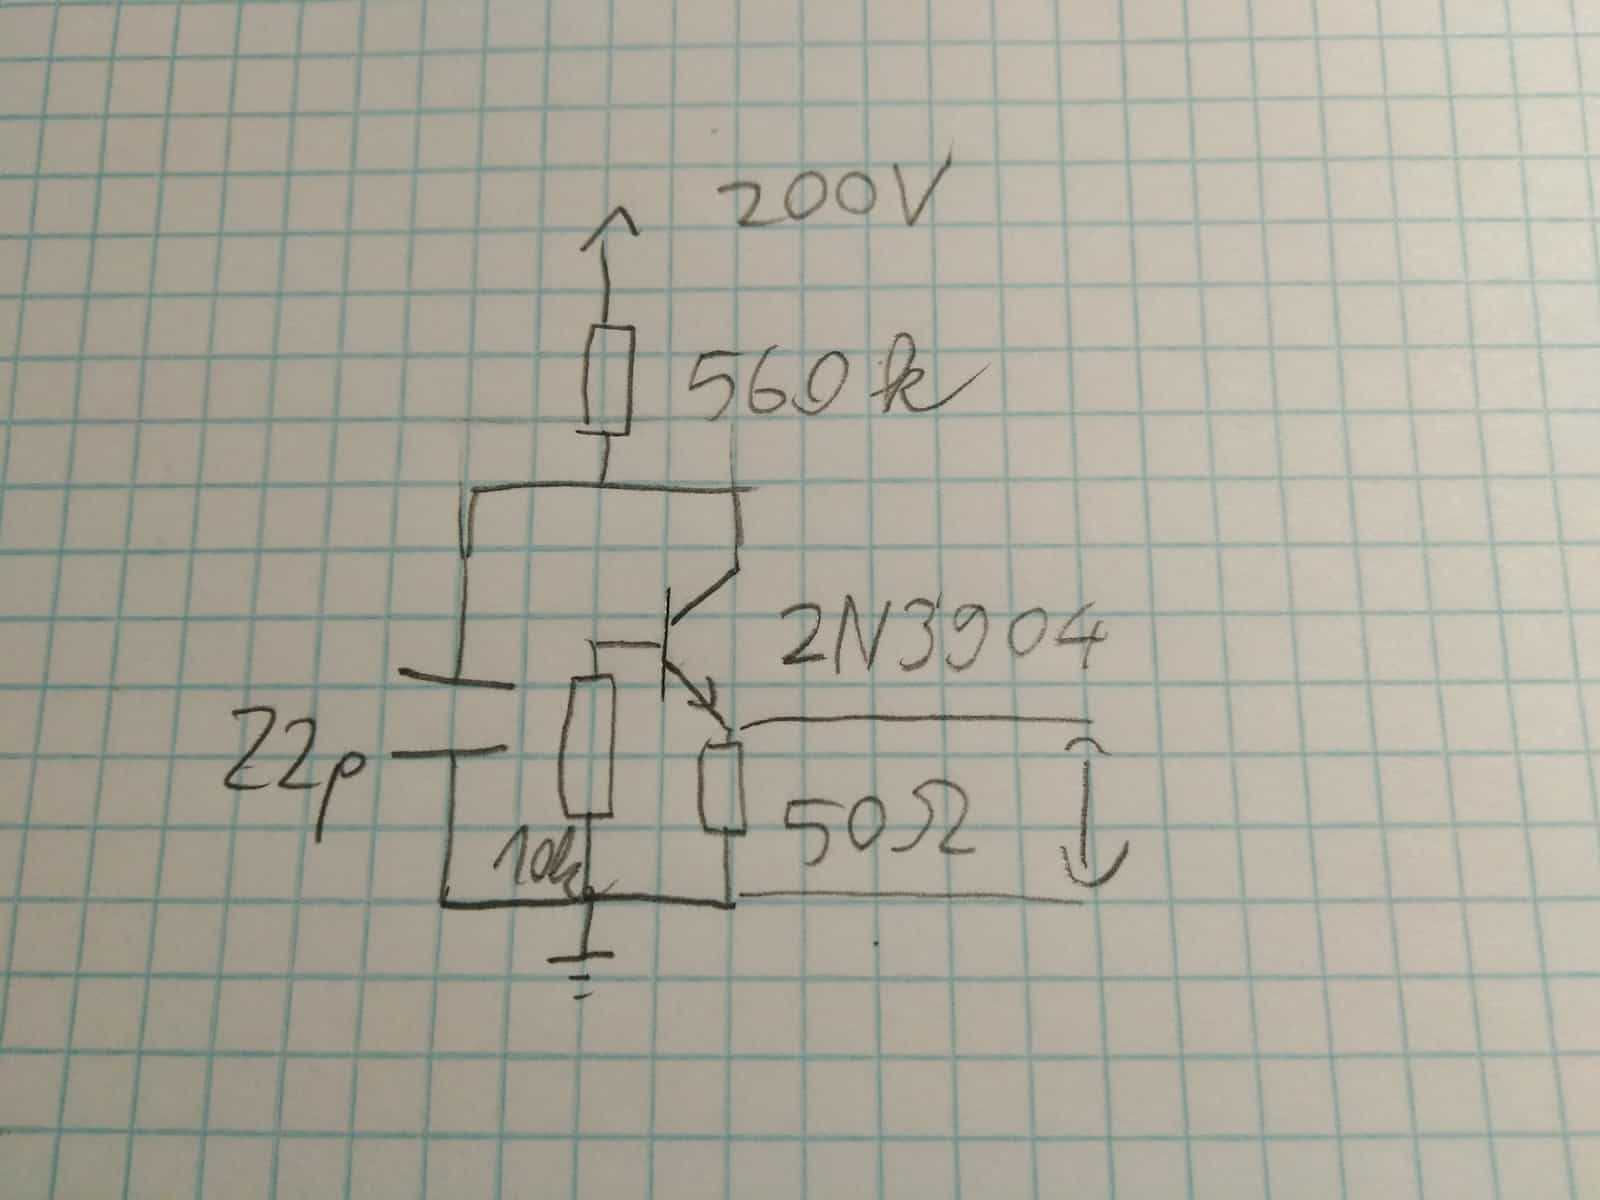 200V
560k
2N3904
22p
50Ω
10k